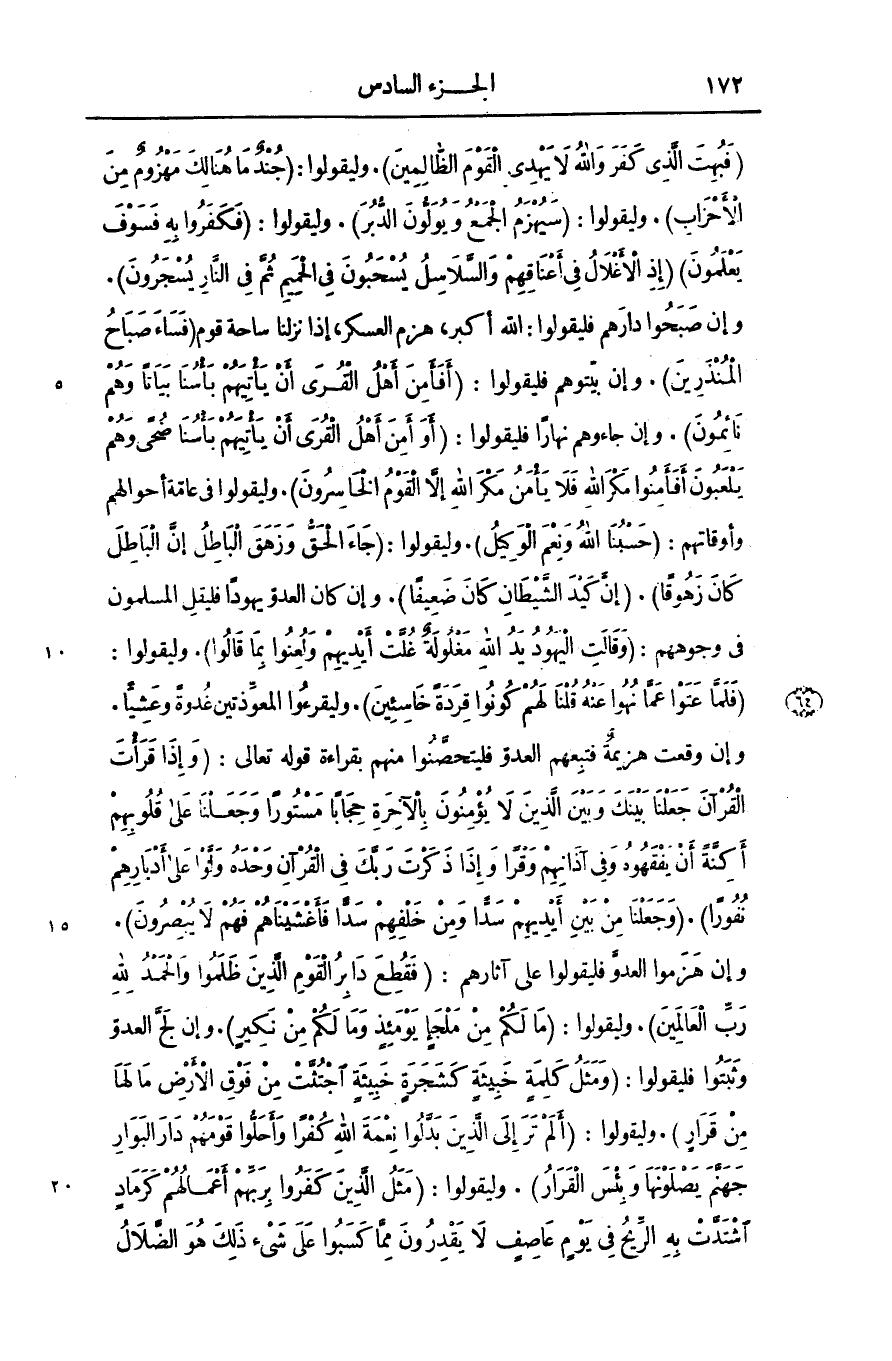 ١٧٢ الجـــزء السادس
(فَبُهِتَ الَّذِى كَفَرَ وَاللهُ لَا يَهْدِى الْقَوْمَ الظَّالِمِينَ). وليقولوا: (جُنْدٌ مَا هُنَالِكَ مَهْزُومٌ مِنَ
الْأَحْزَابِ). وليقولوا : (سَيُهْزَمُ الْجَمْعُ وَيُوَلُّونَ الدُّبُرَ). وليقولوا : (فَكَفَرُوا بِهِ فَسَوْفَ
يَعْلَمُونَ) (إِذِ الْأَغْلَالُ فِى أَعْنَاقِهِمْ وَالسَّلَاسِلُ يُسْحَبُونَ فِى الْحَمِيمِ ثُمَّ فِى النَّارِ يُسْجَرُونَ).
و إن صَبَحُوا دارَهم فليقولوا : الله أكبر، هزم العسكر، إذا نزلنا ساحة قوم (فَسَاءَ صَبَاحُ
الْمُنْذَرِينَ). و إن بيّتوهم فليقولوا : (أَفَأَمِنَ أَهْلُ الْقُـرَى أَنْ يَأْتِيَهُمْ بَأْسُنَا بَيَاتًا وَهُمْ ٥
نَائِمُونَ). و إن جاءوهم نهارًا فليقولوا : (أَوَ أَمِنَ أَهْلُ الْقُرَى أَنْ يَأْتِيَهُمْ بَأْسُنَا ضُحًى وَهُمْ
يَلْعَبُونَ أَفَأَمِنُوا مَكْرَ اللهِ فَلَا يَأْمَنُ مَكْرَ اللهِ إِلَّا الْقَوْمُ الْخَاسِرُونَ). وليقولوا فى عامّة أحوالهم
وأوقاتهم : (حَسْبُنَا اللهُ وَنِعْمَ الْوَكِيلُ). وليقولوا : (جَاءَ الْحَقُّ وَزَهَقَ الْبَاطِلُ إِنَّ الْبَاطِلَ
كَانَ زَهُوقًا). (إِنَّ كَيْدَ الشَّيْطَانِ كَانَ ضَعِيفًا). و إن كان العدوّ يهودًا فليقل المسلمون
فى وجوههم : (وَقَالَتِ الْيَهُودُ يَدُ اللهِ مَغْلُولَةٌ غُلَّتْ أَيْدِيهِمْ وَلُعِنُوا بِمَا قَالُوا). وليقولوا : ١٠
(فَلَمَّا عَتَوْا عَمَّا نُهُوا عَنْهُ قُلْنَا لَهُـمْ كُونُوا قِرَدَةً خَاسِئِينَ). وليقرءوا المعوّذتين غُدوةً وعَشِيًّا. ٦٤
و إن وقعت هزيمةٌ فتبِعهم العدوّ فليتحصّنُوا منهم بقراءة قوله تعالى : (وَإِذَا قَرَأْتَ
الْقُرْآنَ جَعَلْنَا بَيْنَكَ وَبَيْنَ الَّذِينَ لَا يُؤْمِنُونَ بِالْآخِرَةِ حِجَابًا مَسْتُورًا وَجَعَـلْنَا عَلَى قُلُوبِهِمْ
أَكِنَّةً أَنْ يَفْقَهُوهُ وَفِى آذَانِهِمْ وَقْرًا وَإِذَا ذَكَرْتَ رَبَّكَ فِى الْقُرْآنِ وَحْدَهُ وَلَّوْا عَلَى أَدْبَارِهِمْ
نُفُورًا). (وَجَعَلْنَا مِنْ بَيْنِ أَيْدِيهِمْ سَدًّا وَمِنْ خَلْفِهِمْ سَدًّا فَأَغْشَيْنَاهُمْ فَهُمْ لَا يُبْصِرُونَ). ١٥
و إن هَزَموا العدوَّ فليقولوا على آثارهم : (فَقُطِعَ دَابِرُ الْقَوْمِ الَّذِينَ ظَلَمُوا وَالْحَمْدُ لِلهِ
رَبِّ الْعَالَمِينَ). وليقولوا : (مَا لَكُمْ مِنْ مَلْجَإٍ يَوْمَئِذٍ وَمَا لَكُمْ مِنْ نَكِيرٍ). و إن لَجَّ العدوّ
وثَبَتُوا فليقولوا : (وَمَثَلُ كَلِمَةٍ خَبِيثَةٍ كَشَجَرَةٍ خَبِيثَةٍ ٱجْتُثَّتْ مِنْ فَوْقِ الْأَرْضِ مَا لَهَا
مِنْ قَرَارٍ). وليقولوا : (أَلَمْ تَرَ إِلَى الَّذِينَ بَدَّلُوا نِعْمَةَ اللهِ كُفْرًا وَأَحَلُّوا قَوْمَهُمْ دَارَ الْبَوَارِ
جَهَنَّمَ يَصْلَوْنَهَا وَبِئْسَ الْقَرَارُ). وليقولوا : (مَثَلُ الَّذِينَ كَفَرُوا بِرَبِّهِمْ أَعْمَـالُهُمْ كَرَمَادٍ ٢٠
ٱشْتَدَّتْ بِهِ الرِّيحُ فِى يَوْمٍ عَاصِفٍ لَا يَقْدِرُونَ مِمَّا كَسَبُوا عَلَى شَىْءٍ ذَلِكَ هُوَ الضَّلَالُ